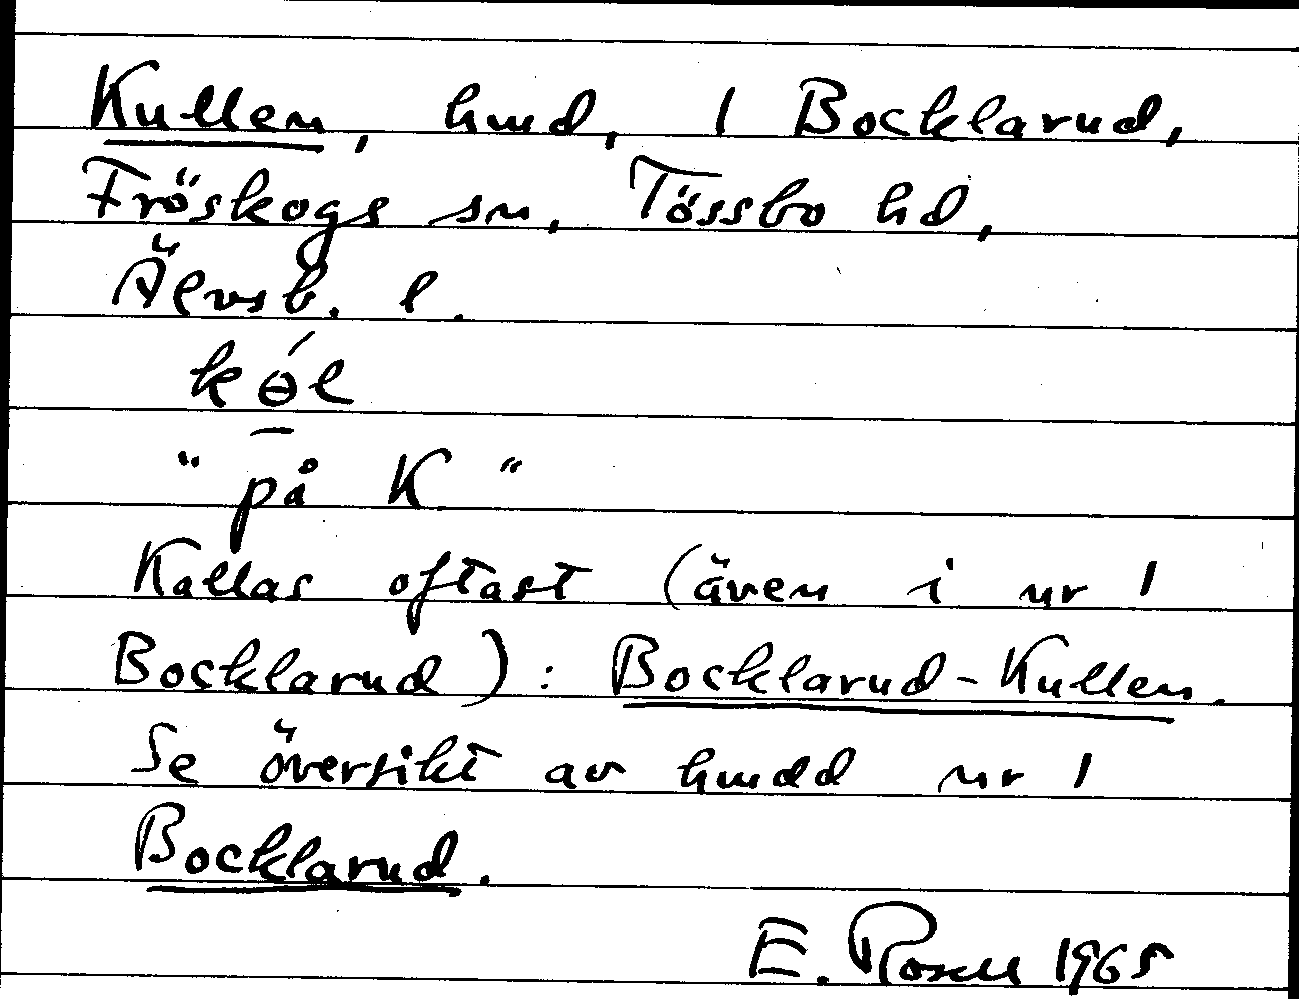 Kullen, hmd, 1 Bocklarud,
Fröskogs sn, Tössbo hd,
Älvsb. l.
kɵ́l
" på K "
Kallas oftast (även i nr 1
Bocklarud): Bocklarud-Kullen.
Se översikt av hmdd nr 1
Bocklarud.
E. Rosell 1965